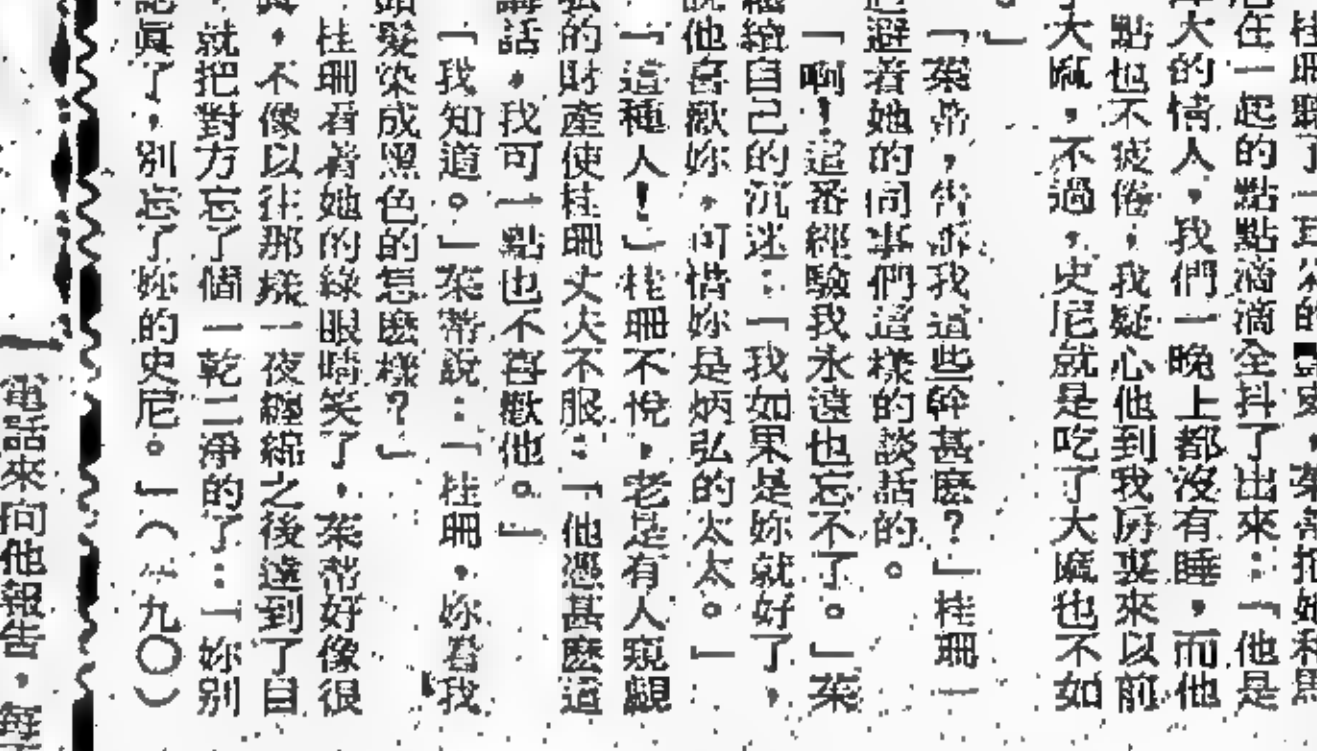 桂珊聽了一耳朵的豔史，茱蒂把她和馬
在一起的點點滴滴全抖了出來：「他是
大的情人，我們一晚上都沒有睡，而他
點也不疲倦，我疑心他到我房裏來以前
了大麻，不過，史尼就是吃了大麻也不如
。」
「茱蒂，告訴我這些幹甚麼？」桂珊一
避着她的同事們這樣的談話的。
「啊！這番經驗我永遠也忘不了。」茱
繼續自己的沉迷：「我如果是妳就好了，
說他喜歡妳，可惜妳是炳弘的太太。」
「這種人！」桂珊不悅，老是有人窺覷
弘的財產使桂珊丈夫不服：「他憑甚麼這
講話，我可一點也不喜歡他。」
「我知道。」茱蒂說：「桂珊，妳看我
頭髮染成黑色的怎麼樣？」
桂珊看着她的綠眼睛笑了，茱蒂好像很
，不像以往那樣一夜纏綿之後達到了目
，就把對方忘了個一乾二淨的了：「妳別
認眞了，別忘了妳的史尼。」（九〇）
電話來向他報告，每